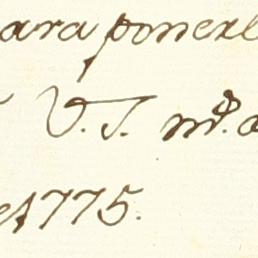 ara ponerl
V.S. m.s a
e 1775.